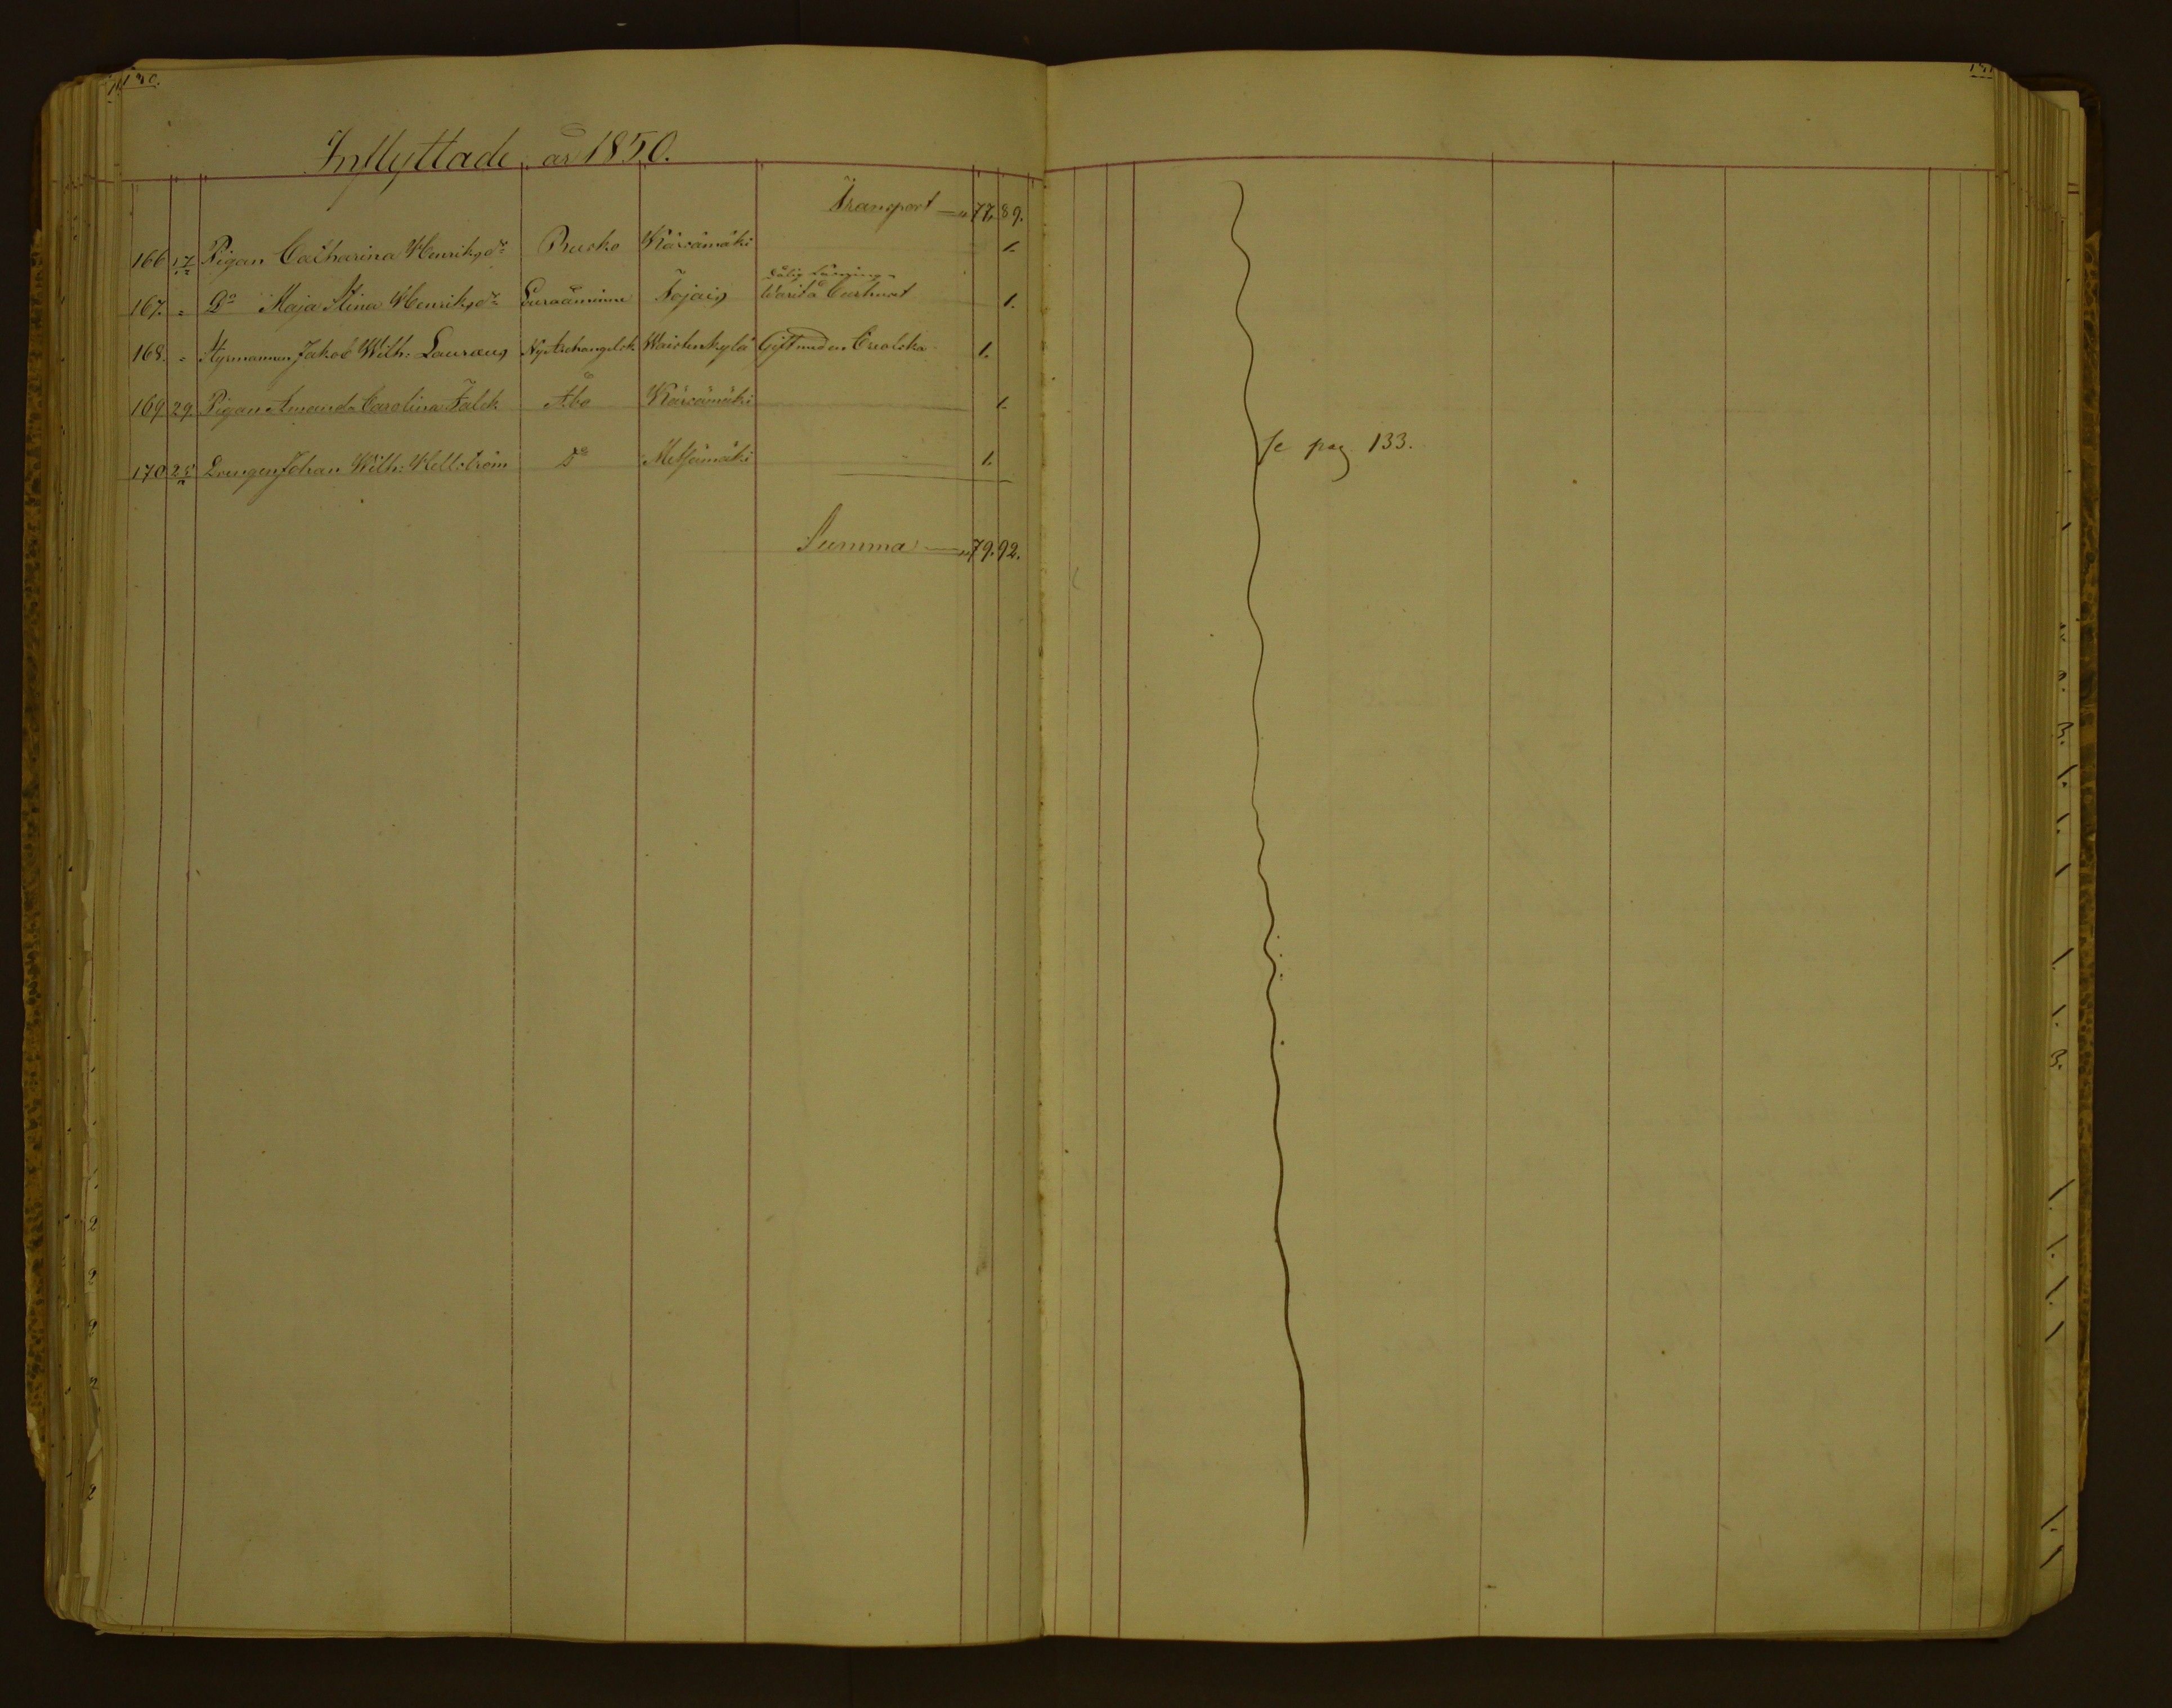 130.
Inflyttade år 1850.
Transport — " 77. 89.
166 17 Pigan Catharina Henriksdr Rusko Kärsämäki 1.
Dålig
167. " Do Maja Stina Henriksdr Euraåminne Tojais 1.
168. " Styrmannen Jakob Wilh: Lauræus Ny Archangelsk Waistenkylä Gift med en Creolska 1.
169 29. Pigan Amanda Carolina Falck Åbo Kärsämäki 1.
170 25 Drengen Johan Wilh: Hellström Do Metsämäki 1.
Summa — " 79. 92.
131
Se pag 133.